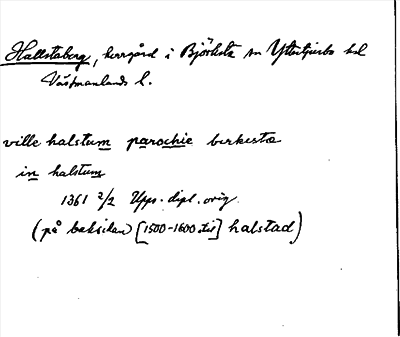 Hallstaberg, herrgård i Björksta sn Yttertjurbo hd
Västmanlands l.
ville halstum parochie birkesta
in halstum
1361 2/2 Upps. dipl. orig.
(på baksidan [1500-1600 tal] halstad)